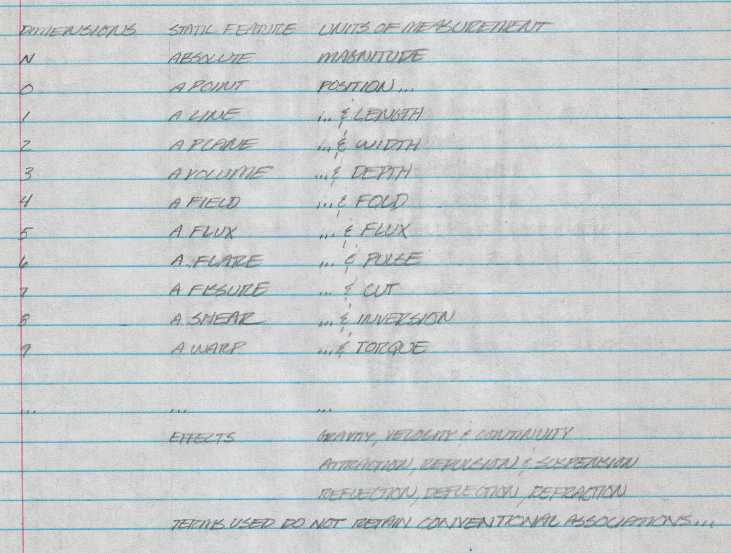 DIMENSIONS STATIC FEATURE UNITS OF MEASUREMENT
N ABSOLUTE MAGNITUDE
0 A POINT POSITION...
1 A LINE ... & LENGTH
2 A PLANE ... & WIDTH
3 A VOLUME ... & DEPTH
4 A FIELD ... & FOLD
5 A FLUX ... & FLUX
6 A FLARE ... & PULSE
7 A FISSURE ... & CUT
8 A SMEAR ... & INVERSION
9 A WARP ... & TORQUE
... ... ...
EFFECTS GRAVITY, VELOCITY & CONTINUITY
ATTRACTION, REPULSION & SUSPENSION
REFLECTION, DEFLECTION, REFRACTION
TERMS USED DO NOT RETAIN CONVENTIONAL ASSOCIATIONS...